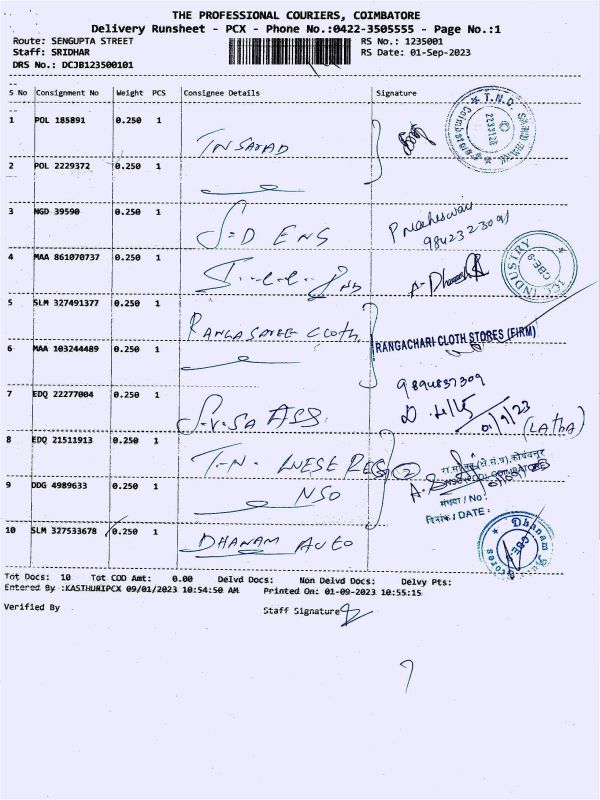 THE PROFESSIONAL COURIERS, COIMBATORE
Delivery Runsheet - PCX - Phone No.:0422-3505555 - Page No.:1
Route: SENGUPTA STREET RS No.: 1235001
Staff: SRIDHAR RS Date: 01-Sep-2023
DRS No.: DCJB123500101
S No Consignment No Weight PCS Consignee Details Signature
1 POL 185891 0.250 1
2 POL 2229372 0.250 1
3 NGD 39590 0.250 1 S-D ENS
P Maheswari
9842323091
4 MAA 861070737 0.250 1
ICC INDUSTRY CBE-9
5 SLM 327491377 0.250 1 RANGASAREE CLOTH
RANGACHARI CLOTH STORES (FIRM)
6 MAA 103244489 0.250 1
9894837309
7 EDQ 22277004 0.250 1 S-V-SA ASS
01/9/23
(LATHA)
8 EDQ 21511913 0.250 1 T-N- WESE REG 2
9 DDG 4989633 0.250 1 NSO
संख्या / No
दिनांक / DATE :
10 SLM 327533678 0.250 1 DHANAM AUTO
Dhanam Stores CBE
Tot Docs: 10 Tot COD Amt: 0.00 Delvd Docs: Non Delvd Docs: Delvy Pts:
Entered By :KASTHURIPCX 09/01/2023 10:54:50 AM Printed On: 01-09-2023 10:55:15
Verified By Staff Signature